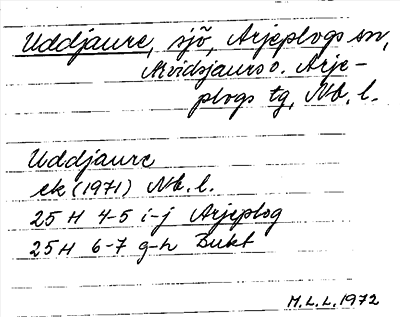 Uddjaure, sjö, Arjeplogs sn,
Arvidsjaurs o. Arje-
plogs tg, Nb. l.
Uddjaure
ek (1971) Nb. l.
25 H 4-5 i-j Arjeplog
25 H 6-7 g-h Bukt
M.L.L. 1972